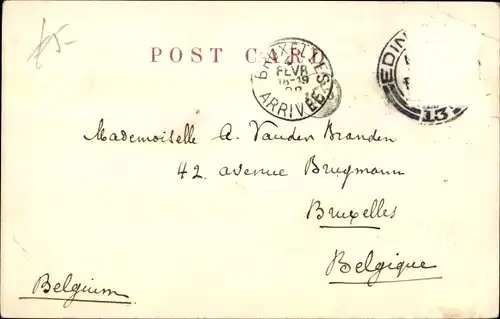 £5-
POST CARD
BRUXELLES
FEVR
18-19
ARRIVEE
EDIN
13
Mademoiselle A. Vanden Branden
42, avenue Brugmann
Bruxelles
Belgique
Belgium